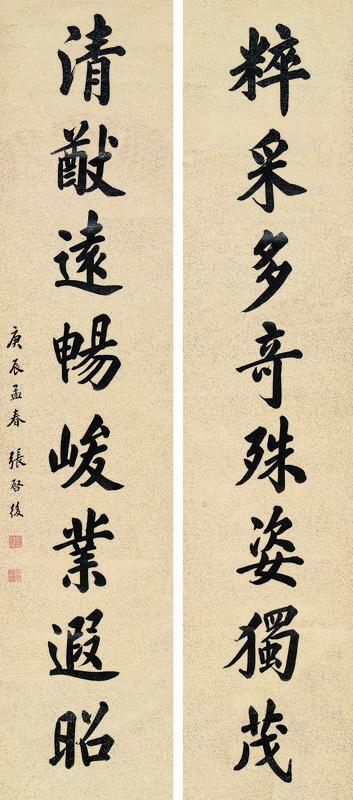 粹采多奇殊姿獨茂
清猷遠暢峻業遐昭
庚辰孟春 張啓後